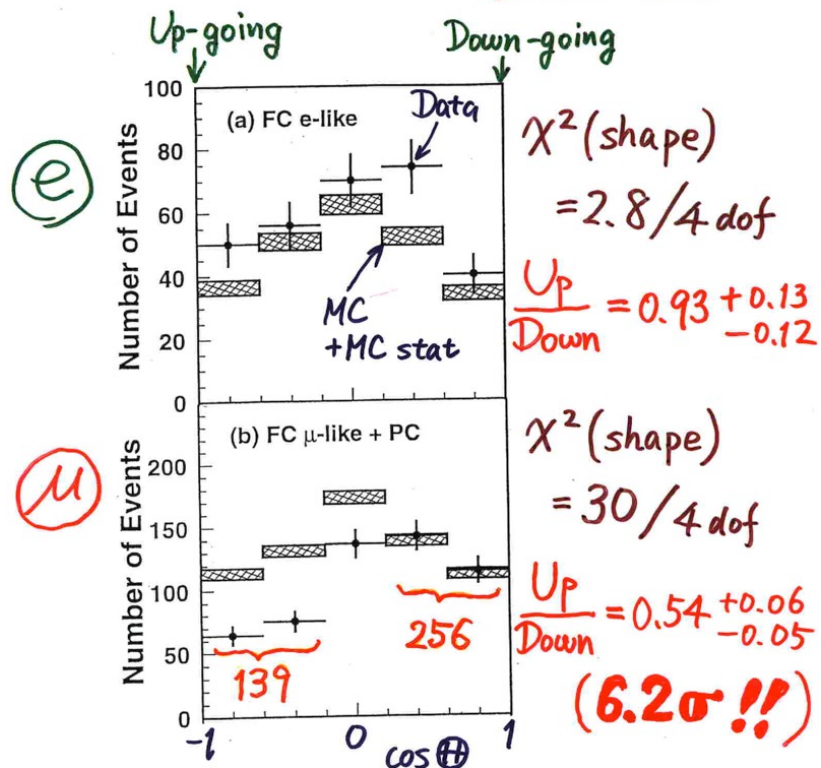 Up-going
Down-going
e
100
80
60
40
20
0
Number of Events
(a) FC e-like
Data
MC
+MC stat
χ² (shape)
= 2.8 / 4 dof
Up/Down = 0.93 +0.13 −0.12
μ
200
150
100
50
0
Number of Events
(b) FC μ-like + PC
139
256
χ² (shape)
= 30 / 4 dof
Up/Down = 0.54 +0.06 −0.05
(6.2σ !!)
-1
0
1
cos Θ